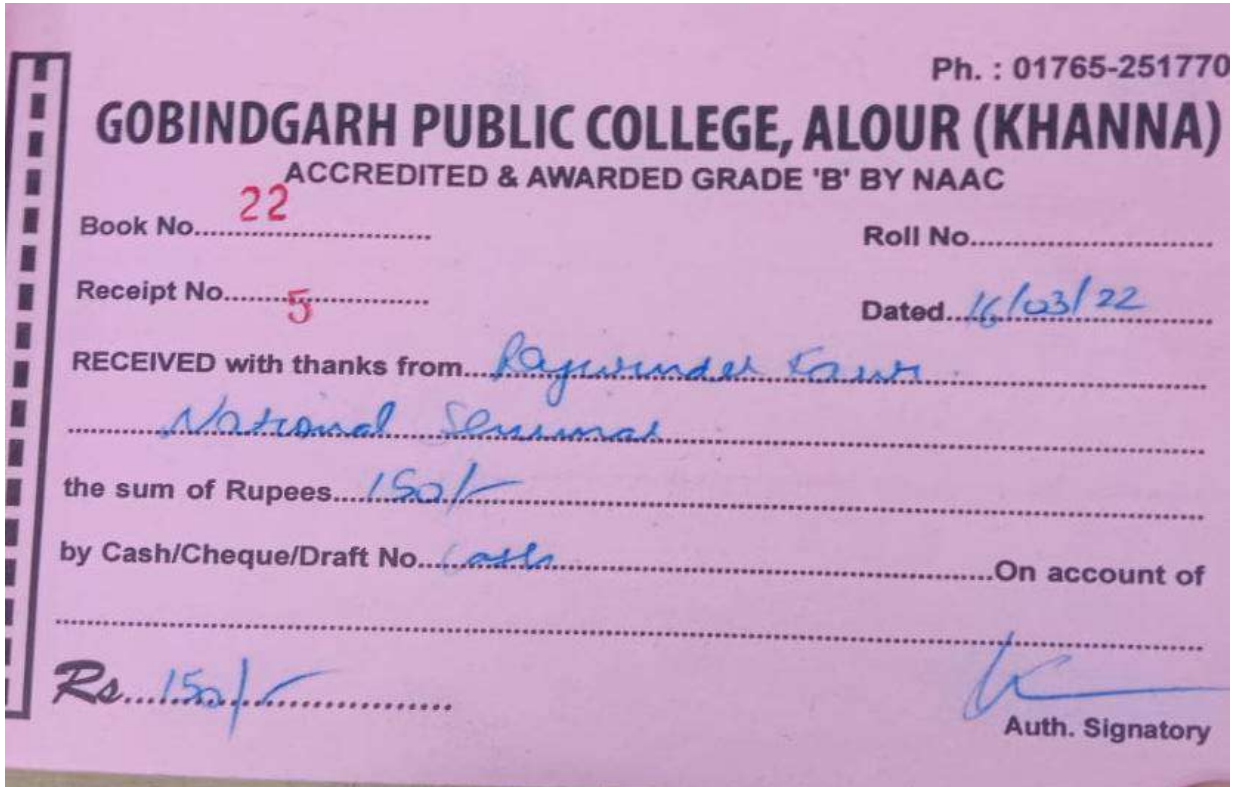 Ph. : 01765-251770
GOBINDGARH PUBLIC COLLEGE, ALOUR (KHANNA)
ACCREDITED & AWARDED GRADE 'B' BY NAAC
Book No. 22 Roll No.
Receipt No. 5 Dated 16/03/22
RECEIVED with thanks from Rajwinder Kaur
National Seminar
the sum of Rupees 150/-
by Cash/Cheque/Draft No. Cash On account of
Rs. 150/-
Auth. Signatory